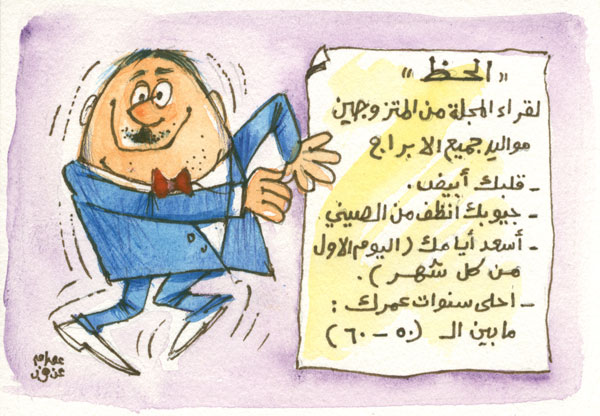 « الحظ »
لقراء المجلة من المتزوجين
مواليد جميع الابراج
- قلبك أبيض.
- جيوبك انظف من الصيني
- أسعد أيامك (اليوم الاول
من كل شهر).
- احلى سنوات عمرك :
ما بين الـ (٥٠ - ٦٠)
عصام